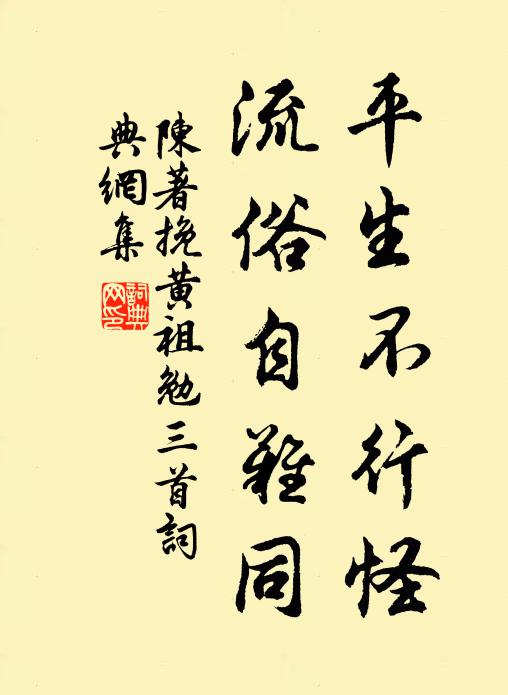 平生不行怪
流俗自難同
陳著挽黃祖勉三首詞
典網集
詞典网印